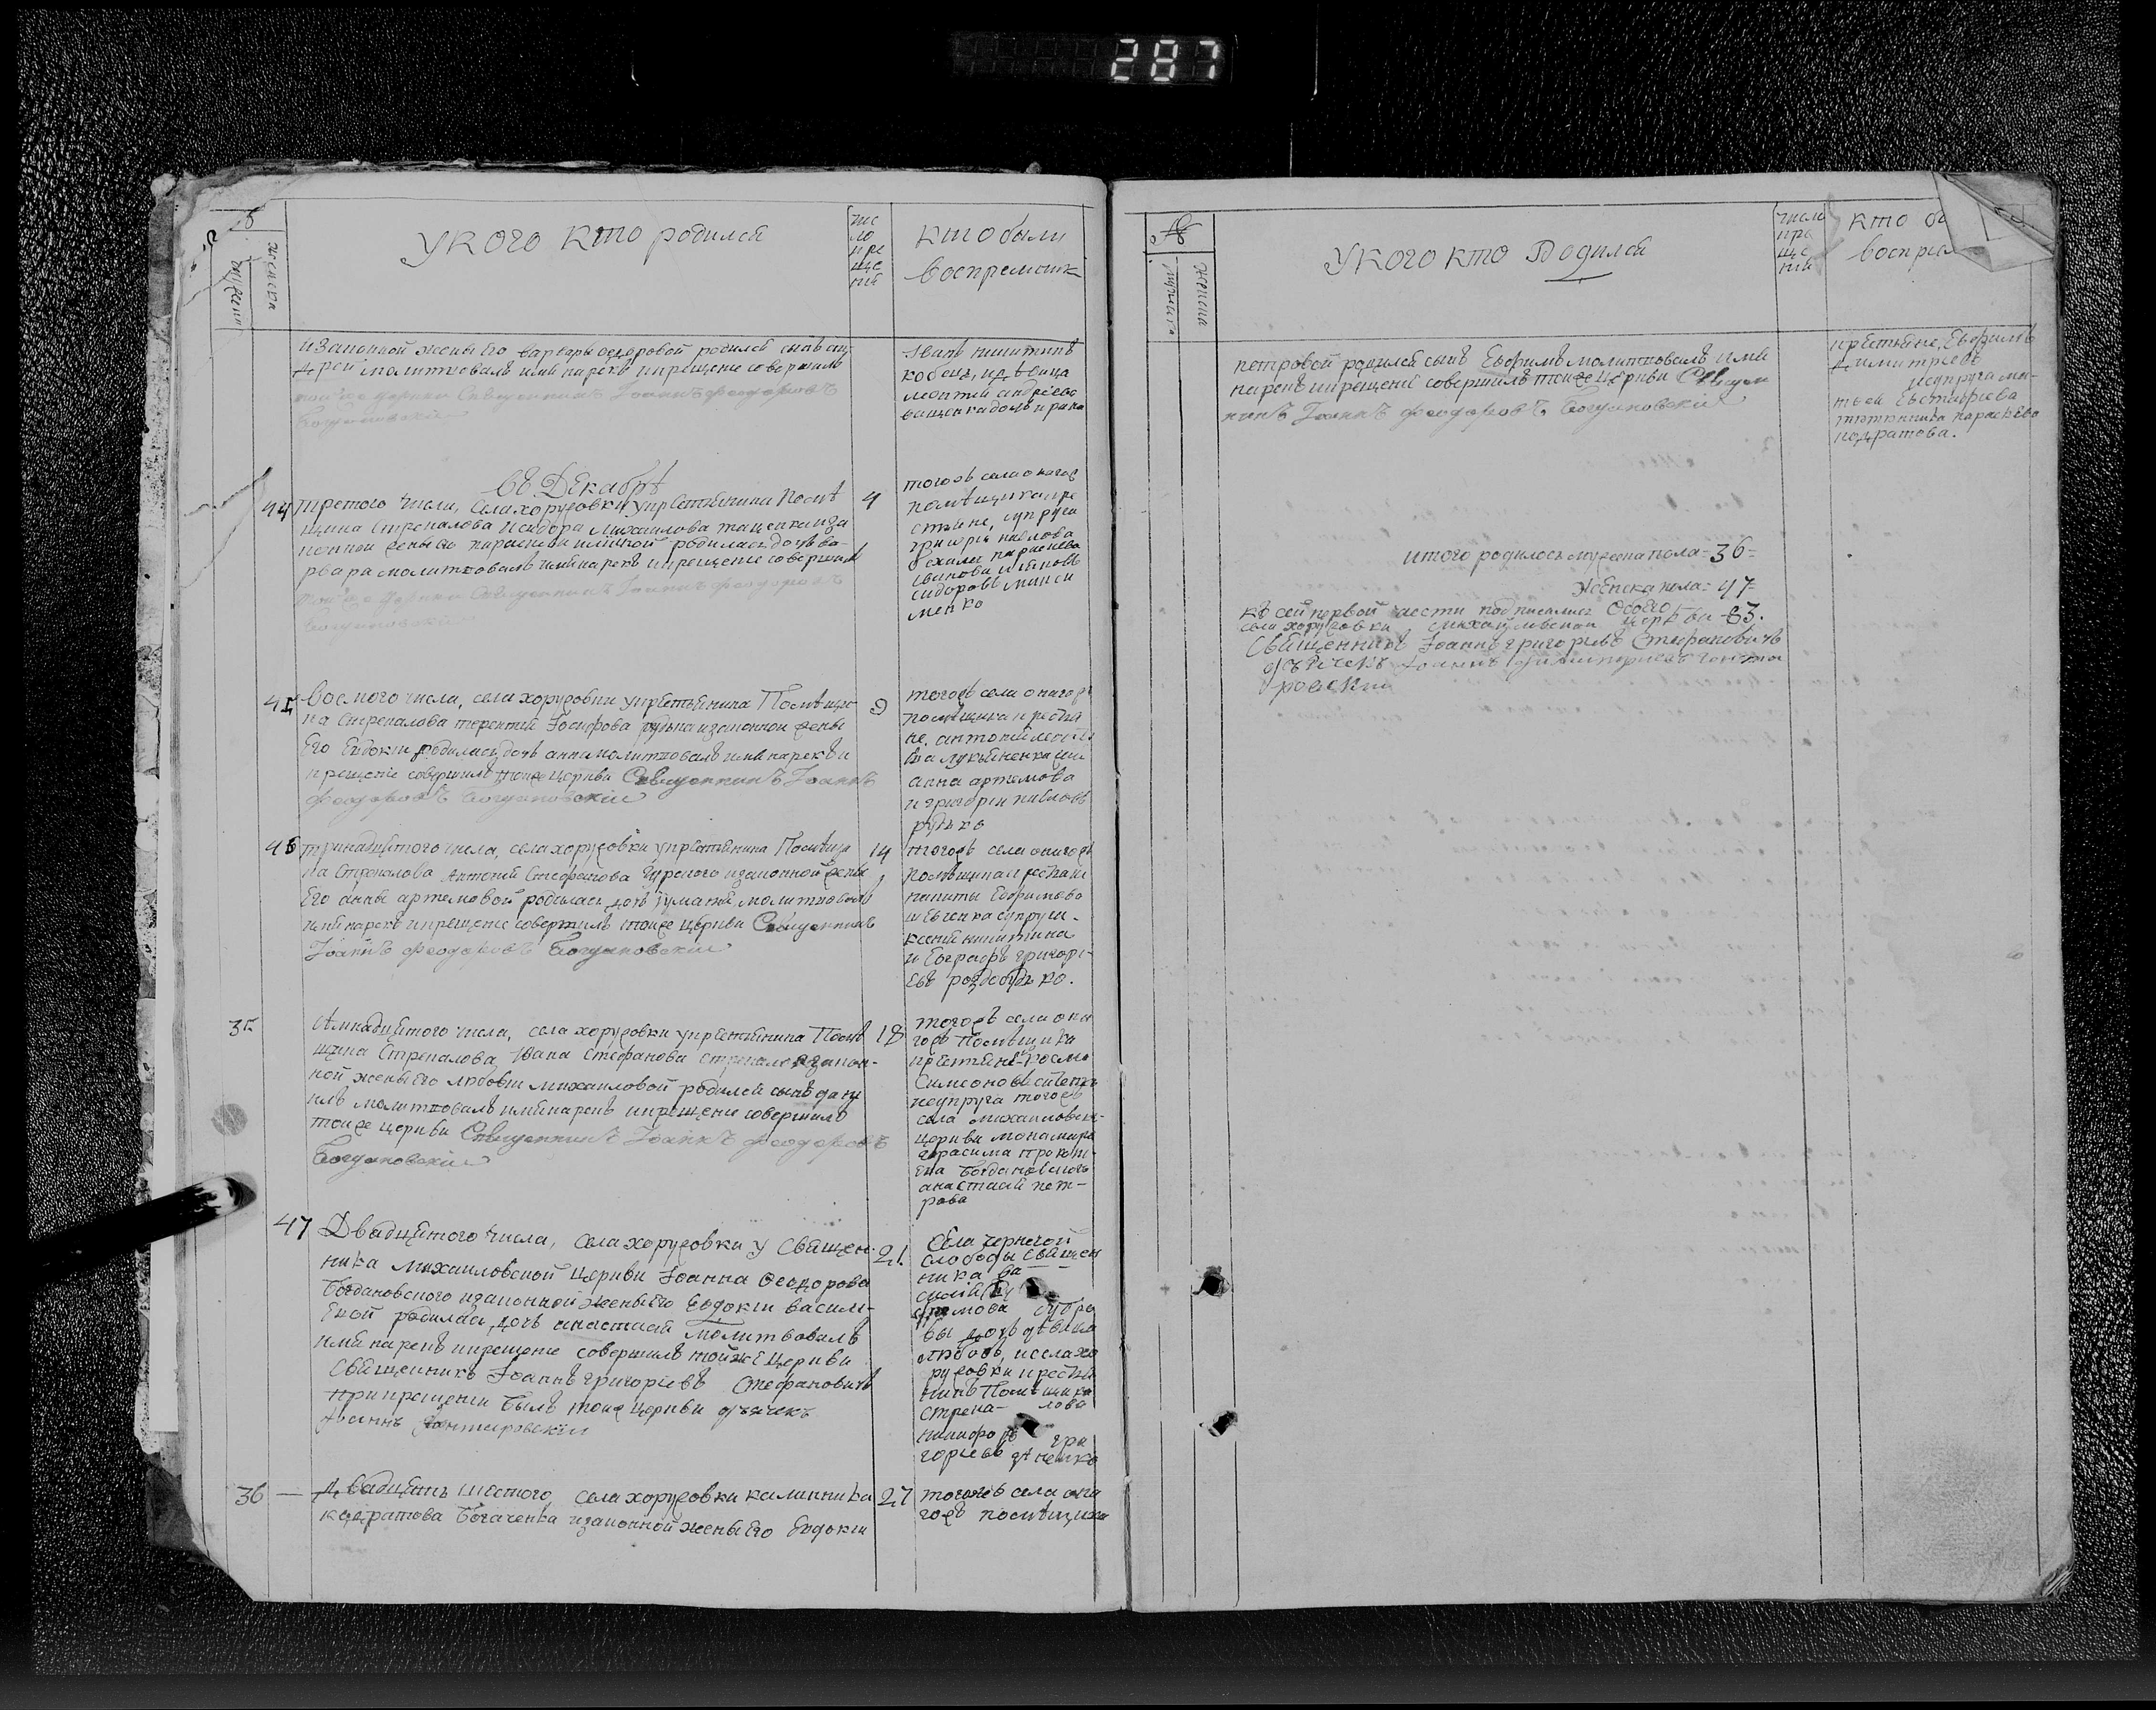 287
№
мужска
женска
У КОГО Кто родился
чис
ло
кре
ще
нія
кто были
воспремник
и законной жены Его варвары Федоровой родился сынъ ан-
дрей молитвовалъ имя нарекъ и крещеніе совершилъ
той же церкви Священникъ Іоаннъ Феодоровъ
Богдановскій
Іванъ никитинъ
кобецъ, и дѣвица
андреева
дочь ирина
Въ Декабрѣ
44 третого числа, села хоружовки у крестьянина помѣ
щика Стрекалова Исидора Михаилова из за
конной жены Его параскевы родилась дочь ва-
рвара молитвовалъ имя нарекъ и крещеніе совершилъ
той же церкви Священникъ Іоаннъ Феодоровъ
Богдановскій
4
тогожъ села оногожъ
помѣщика кре
стьяне, супруга
григорія павлова
параскева
иванова и яковъ
сидоровъ макси
менко
45 Восмого числа, села хоружовки у крестьянина Помѣщи-
ка Стрекалова терентія Іосифова рудька и законной жены
Его Евдокіи родилась дочь анна молитвовалъ имя нарекъ и
крещеніе совершилъ тоиже церкви Священникъ Іоаннъ
Феодоровъ Богдановскій
9
тогожъ села оногожъ
помѣщика крестья
не, антонія
лукьяненка
анна артемова
и григорій павловъ
рудько
46 тринадцятого числа, села хоружовки у крестьянина Помѣщи
ка Стрекалова Антонія Стефанова Гурского и законной жены
Его анны артемовой родилась дочь молитвовалъ
имя нарекъ и крещеніе совершилъ тоиже церкви Священникъ
Іоаннъ Феодоровъ Богдановскій
14
тогожъ села оногожъ
помѣщика крестьяне
никиты Ефимова
шевченка супруга
ксенія никитина
и Евграфъ григорі-
евъ роздобудько.
35
семнадцятого числа, села хоружовки у крестьянина Помѣ
щика Стрекалова, Ивана Стефанова и закон-
ной жены Его любови михаиловой родился сынъ дани
илъ молитвовалъ имя нарекъ и крещеніе совершилъ
тоиже церкви Священникъ Іоаннъ Феодоровъ
Богдановскій
18
тогожъ села оно
гожъ Помѣщика
крестьяне косма
Симеоновъ
и супруга тогожъ
села михаиловской
церкви понамаря
герасима прокопі-
ева Богдановского
анастасія пет-
рова
47 Двадцятого числа, села хоружовки у Священ-
ника Михаиловской Церкви Іоанна Феодорова
Богдановского и законной жены Его Евдокіи васили-
евой родилась, дочь анастасія Молитвовалъ
имя нарекъ и крещеніе совершилъ тойже Церкви
Священникъ Іоаннъ Григоріевъ Стефановичъ
при крещеніи былъ тоиже церкви дьячекъ
Іоаннъ Гонтаровскій
21
Села чернечой
слободы Священ
ника ва
силія
дочь дѣвица
любовъ, и села хо
ружовки крестья
нинъ Помѣщика
Стрека- лова
никифоръ гри
горіевъ
36 — двадцять шестого, села хоружовки калинника
кодратова Богаченка и законной жены Его Евдокіи
27
тогожъ села оно
гожъ помѣщика
№
мужска
женска
У КОГО КТО Родился
числ
кре
ще
нія
кто бы
воспрі
петровой родился сынъ Ефимъ молитвовалъ имя
нарекъ и крещеніе совершилъ тоиже Церкви Священ
никъ Іоаннъ Феодоровъ Богдановскій
крестьяне, Ефимъ
димитріевъ
и супруга ма-
тѳея Евстафіева
параскева
кодратова.
итого родилось мужеска пола = 36 =
Женска пола = 47 =
къ сей первой части подписались Обоего
села хоружовки михаиловской церкви — 83.
Священникъ Іоаннъ григоріевъ Стефановичъ
дьячекъ Іоаннъ димитріевъ гонта
ровскій